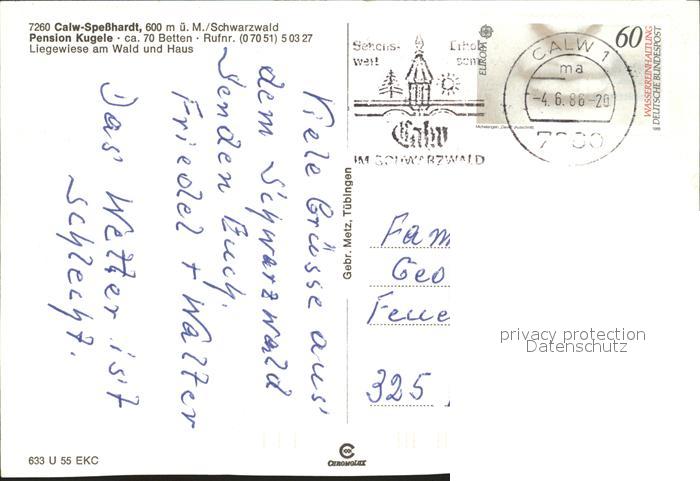 7260 Calw-Speßhardt, 600 m ü. M./Schwarzwald
Pension Kugele · ca. 70 Betten · Rufnr. (07051) 50327
Liegewiese am Wald und Haus
Viele Grüsse aus
dem Schwarzwald
senden Euch.
Friedel + Walter
Das Wetter ist
schlecht.
Gebr. Metz, Tübingen
Sehens-
wert
Erhol
sam
Calw
IM SCHWARZWALD
EUROPA
60
WASSERREINHALTUNG
DEUTSCHE BUNDESPOST
CALW 1
ma
-4.6.86-20
Fam
Geo
Feue
325
privacy protection
Datenschutz
633 U 55 EKC
CHROMOLUX